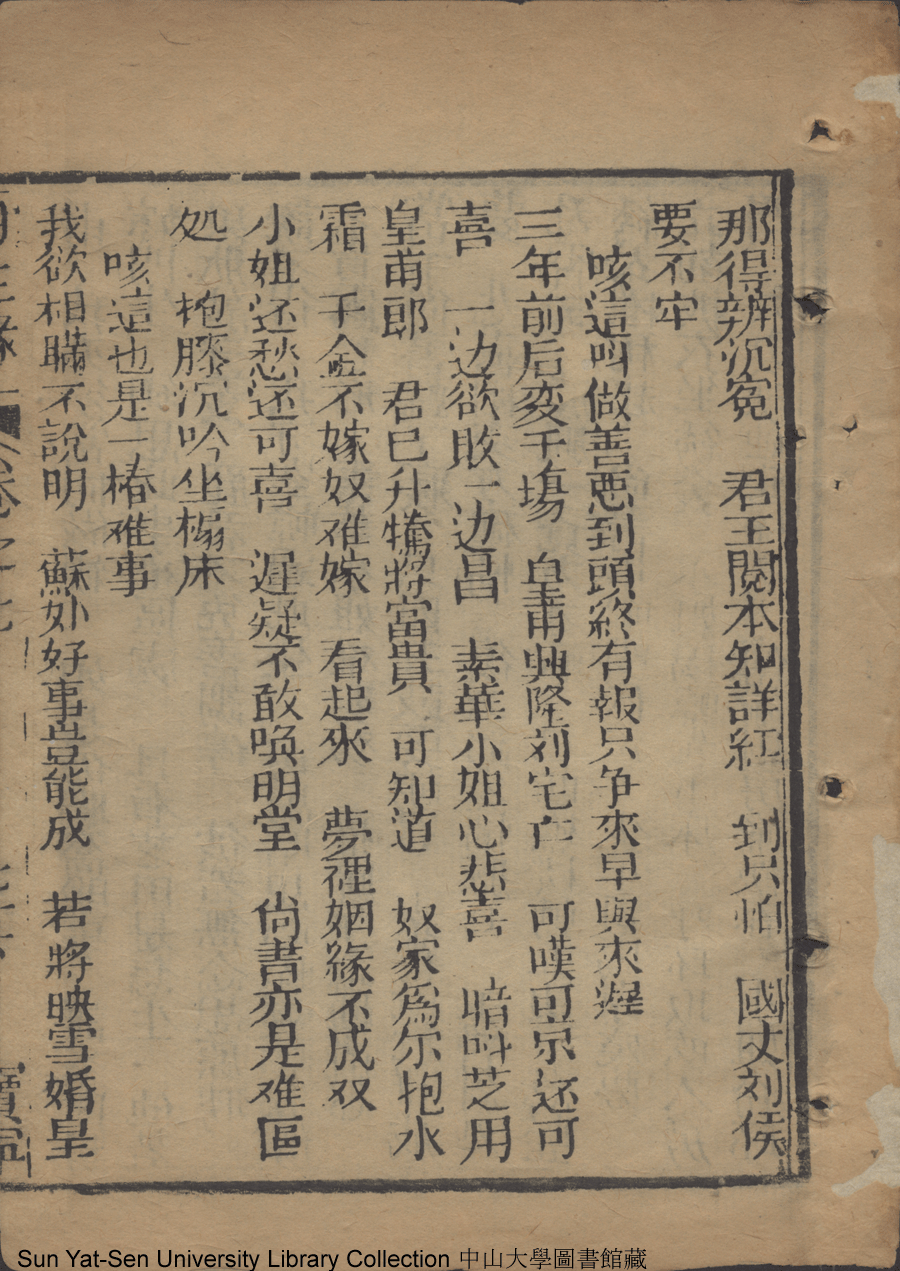 那得辨沉冤　君王閱本知詳紅　到只怕　國丈刘侯
要不牢
咳這叫做善悪到頭終有報只争來早與來遲
三年前后変千塲　皇甫興隆刘宅亡　可嘆可哀还可
喜　一边欲敗一边昌　素華小姐心悲喜　暗叫芝用
皇甫郎　君已升犨將富貴　可知道　奴家爲尔抱水
霜　千金不嫁奴难嫁　看起來　夢裡姻緣不成双
小姐还愁还可喜　遲疑不敢喚明堂　尙書亦是难區
処　抱膝沉吟坐榻床
咳這也是一樁难事
我欲相瞞不說明　蘇外好事豈能成　若將映雪婚皇
卷之七
Sun Yat-Sen University Library Collection 中山大學圖書館藏